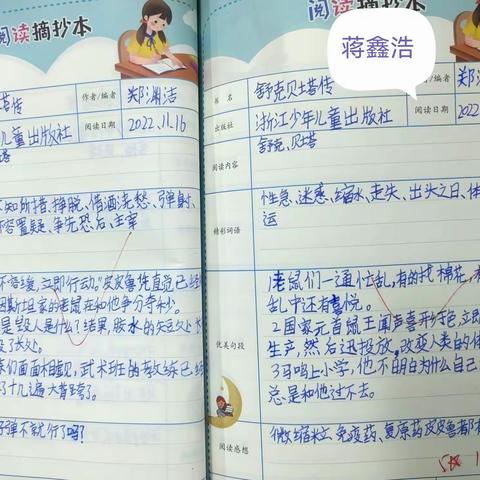 阅读摘抄本
塔传
作者/编者 郑渊洁
儿童出版社
阅读日期 2022.11.16
塔
知所措、挣脱、借酒浇愁、弹射、
容置疑、争先恐后、主宰
不容缓,立即行动。"皮皮鲁凭直觉已经
因斯坦家的老鼠在和他争分夺秒。
是毁人是什么?结果,胶水的失效处
没了长处。
们面面相觑,武术班的教练已
了十几遍大背跨了。
子弹不就行了吗?
阅读摘抄本
蒋鑫浩
书名 舒克贝塔传
作者/编者 郑
出版社 浙江少年儿童出版社
阅读日期 202
阅读内容 舒克、贝塔
精彩词语
性急、迷惑、缩水、走失、出头之日、体
运
优美句段
1老鼠们一通忙乱,有的找棉花,
乱中还有喜悦。
2国家元首鼠王闻声喜形于色,立即
生产,然后迅速投放,改变人类的体
3马鸣上小学,他不明白为什么自己
总是和他过不去。
阅读感想
微缩粒、免疫药、复原药皮皮鲁都